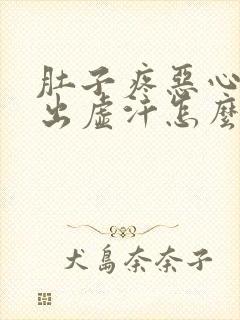 肚子疼惡心
出虛汗怎麼
犬島奈奈子